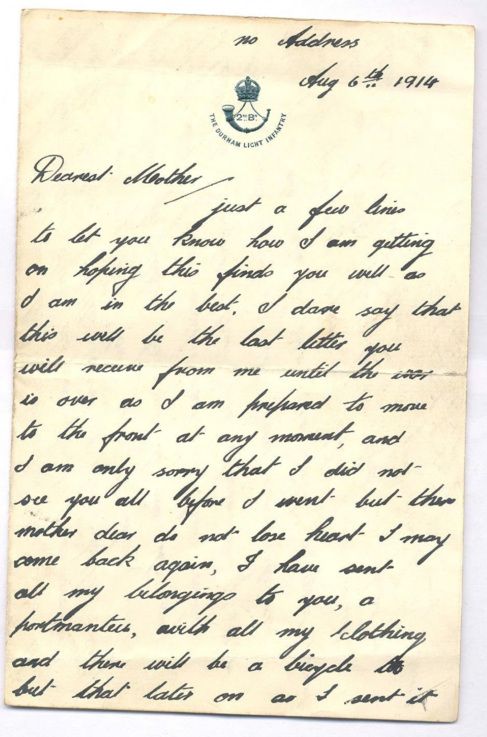 no Address
Aug 6th 1914
2ND BN
THE DURHAM LIGHT INFANTRY
Dearest Mother
just a few lines
to let you know how I am getting
on hoping this finds you well as
I am in the best. I dare say that
this will be the last letter you
will receive from me until the war
is over as I am prepared to move
to the front at any moment, and
I am only sorry that I did not
see you all before I went but then
mother dear do not lose heart I may
come back again, I have sent
all my belongings to you, a
portmanteu, with all my clothing
and there will be a bicycle
but that later on as I sent it